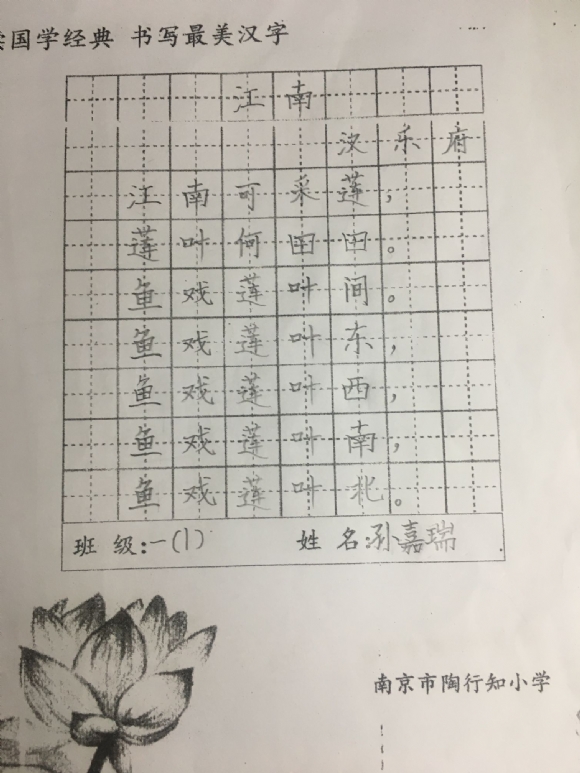 国学经典 书写最美汉字
江南
汉乐府
江南可采莲，
莲叶何田田。
鱼戏莲叶间。
鱼戏莲叶东，
鱼戏莲叶西，
鱼戏莲叶南，
鱼戏莲叶北。
班级：一（1） 姓名：孙嘉瑞
南京市陶行知小学